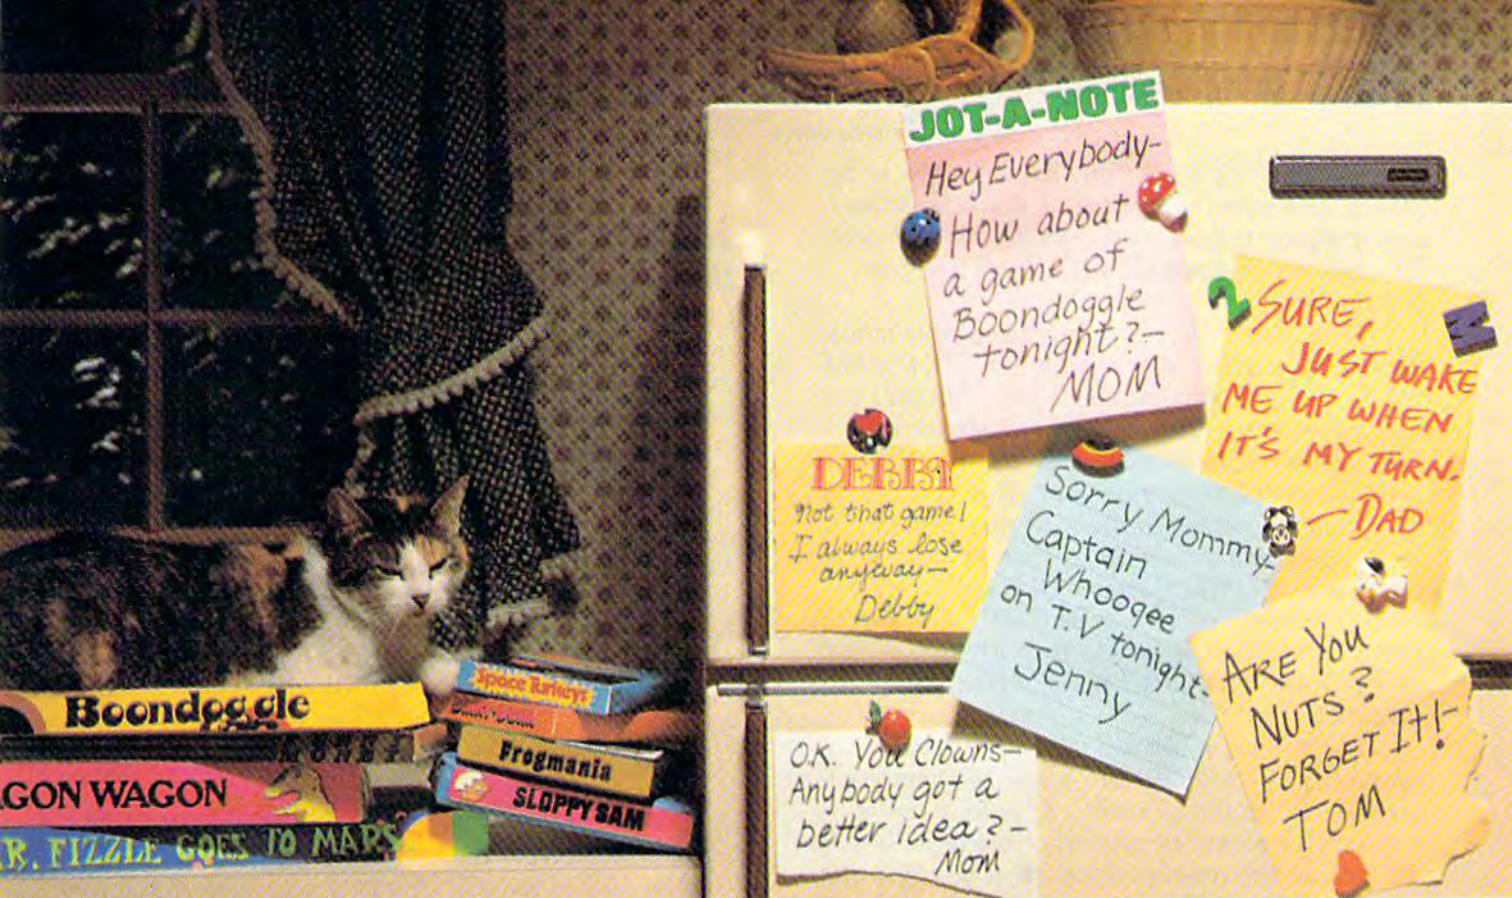 JOT-A-NOTE
Hey Everybody-
How about
a game of
Boondoggle
tonight?-
MOM
SURE,
JUST WAKE
ME UP WHEN
IT'S MY TURN.
-DAD
DEBBY
Not that game!
I always lose
anyway-
Debby
Sorry Mommy-
Captain
Whoogee
on T.V tonight-
Jenny
ARE YOU
NUTS?
FORGET IT!-
TOM
O.K. You Clowns-
Anybody got a
better idea?-
Mom
Boondoggle
GON WAGON
R. FIZZLE GOES TO MARS
Space Turkeys
Frogmania
SLOPPY SAM
2
M